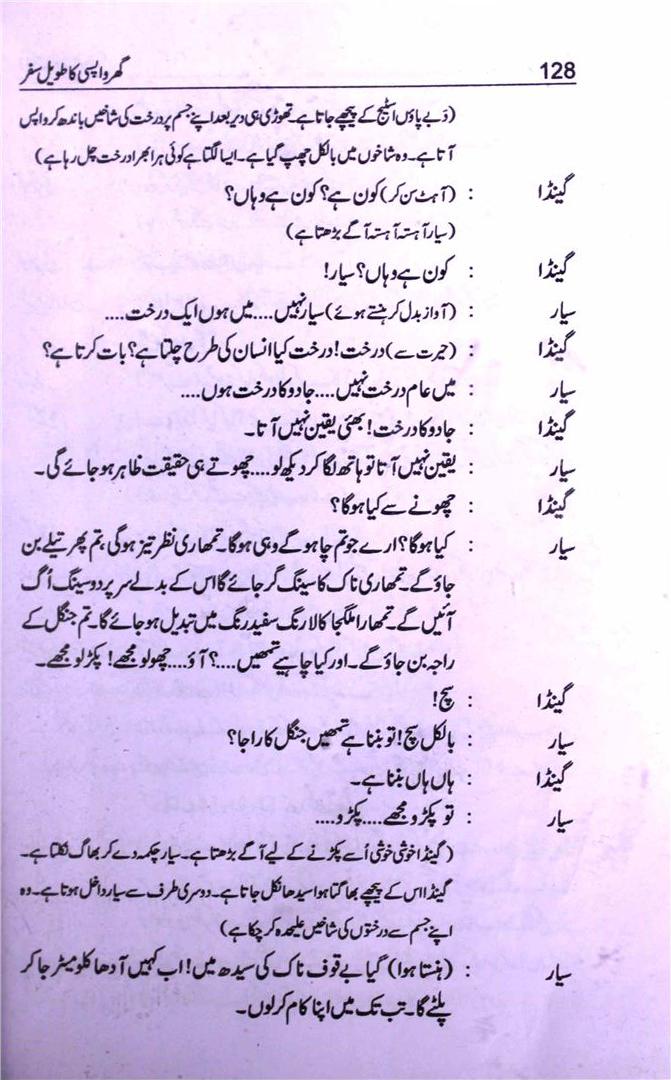 128 گھر واپسی کا طویل سفر
(دَبے پاؤں اسٹیج کے پیچھے جاتا ہے۔ تھوڑی ہی دیر بعد اپنے جسم پر درخت کی شاخیں باندھ کر واپس
آتا ہے۔ وہ شاخوں میں بالکل چھپ گیا ہے۔ ایسا لگتا ہے کوئی ہرا بھرا درخت چل رہا ہے)
گینڈا : (آہٹ سن کر) کون ہے؟ کون ہے وہاں؟
(سیار آہستہ آہستہ آگے بڑھتا ہے)
گینڈا : کون ہے وہاں؟ سیار!
سیار : (آواز بدل کر ہنستے ہوئے) سیار نہیں.... میں ہوں ایک درخت....
گینڈا : (حیرت سے) درخت! درخت کیا انسان کی طرح چلتا ہے؟ بات کرتا ہے؟
سیار : میں عام درخت نہیں.... جادو کا درخت ہوں....
گینڈا : جادو کا درخت! بھئی یقین نہیں آتا۔
سیار : یقین نہیں آتا تو ہاتھ لگا کر دیکھ لو.... چھوتے ہی حقیقت ظاہر ہو جائے گی۔
گینڈا : چھونے سے کیا ہوگا؟
سیار : کیا ہوگا؟ ارے جو تم چاہو گے وہی ہوگا۔ تمھاری نظر تیز ہوگی، تم پھرتیلے بن
جاؤ گے۔ تمھاری ناک کا سینگ گر جائے گا اس کے بدلے سر پر دو سینگ اُگ
آئیں گے۔ تمھارا ملگجا کالا رنگ سفید رنگ میں تبدیل ہو جائے گا۔ تم جنگل کے
راجہ بن جاؤ گے۔ اور کیا چاہیے تمھیں....؟ آؤ.... چھو لو مجھے! پکڑ لو مجھے۔
گینڈا : سچ!
سیار : بالکل سچ! تو بننا ہے تمھیں جنگل کا راجا؟
گینڈا : ہاں ہاں بننا ہے۔
سیار : تو پکڑو مجھے.... پکڑو....
(گینڈا خوشی خوشی اُسے پکڑنے کے لیے آگے بڑھتا ہے۔ سیار چکمہ دے کر بھاگ نکلتا ہے۔
گینڈا اس کے پیچھے بھاگتا ہوا سیدھا نکل جاتا ہے۔ دوسری طرف سے سیار داخل ہوتا ہے۔ وہ
اپنے جسم سے درختوں کی شاخیں علیحدہ کر چکا ہے)
سیار : (ہنستا ہوا) گیا بے قوف ناک کی سیدھ میں! اب کہیں آدھا کلومیٹر جا کر
پلٹے گا۔ تب تک میں اپنا کام کر لوں۔